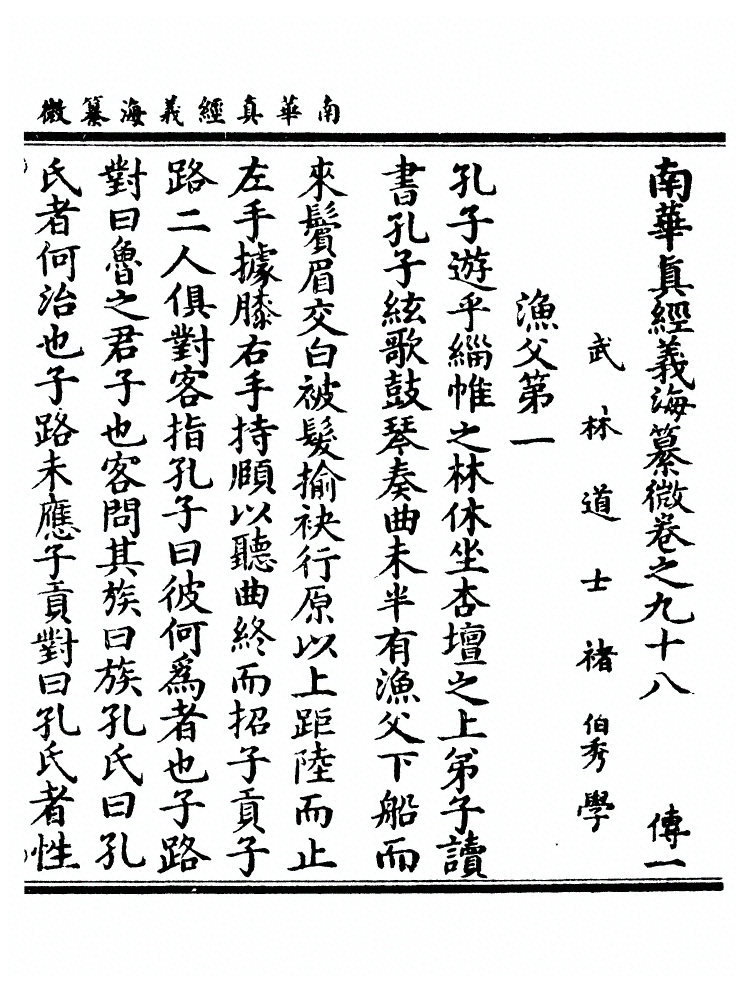 南華真經義海纂微
南華真經義海纂微卷之九十八 傳一
武林道士褚伯秀學
漁父第一
孔子遊乎緇帷之林休坐杏壇之上弟子讀
書孔子絃歌鼓琴奏曲未半有漁父下船而
來鬢眉交白被髮揄袂行原以上距陸而止
左手據膝右手持頤以聽曲終而招子貢子
路二人俱對客指孔子曰彼何為者也子路
對曰魯之君子也客問其族曰族孔氏曰孔
氏者何治也子路未應子貢對曰孔氏者性